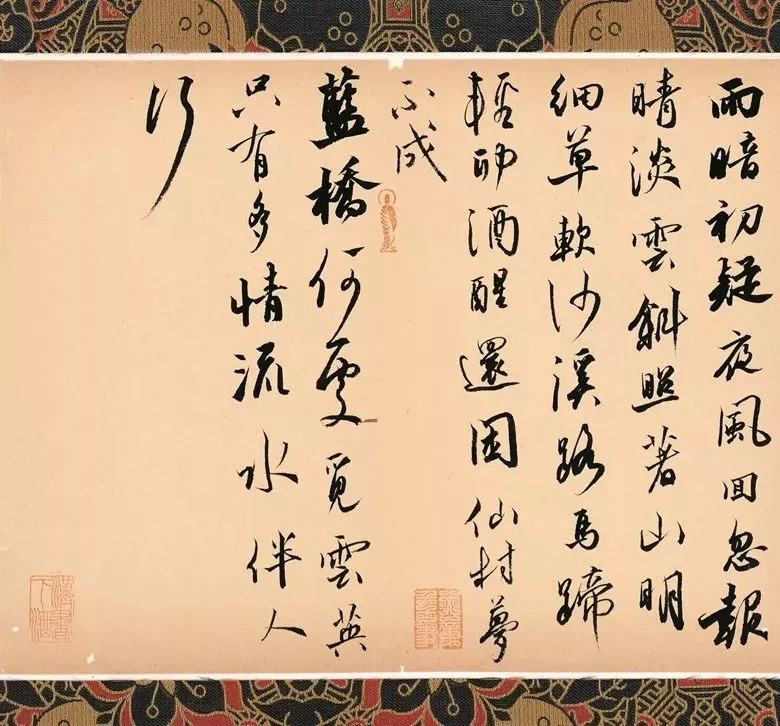 雨暗初疑夜風回忽報
晴淡雲斜照著山明
細草軟沙溪路馬蹄
輕卯酒醒還困仙村夢
不成
藍橋何處覓雲英
只有多情流水伴人
行